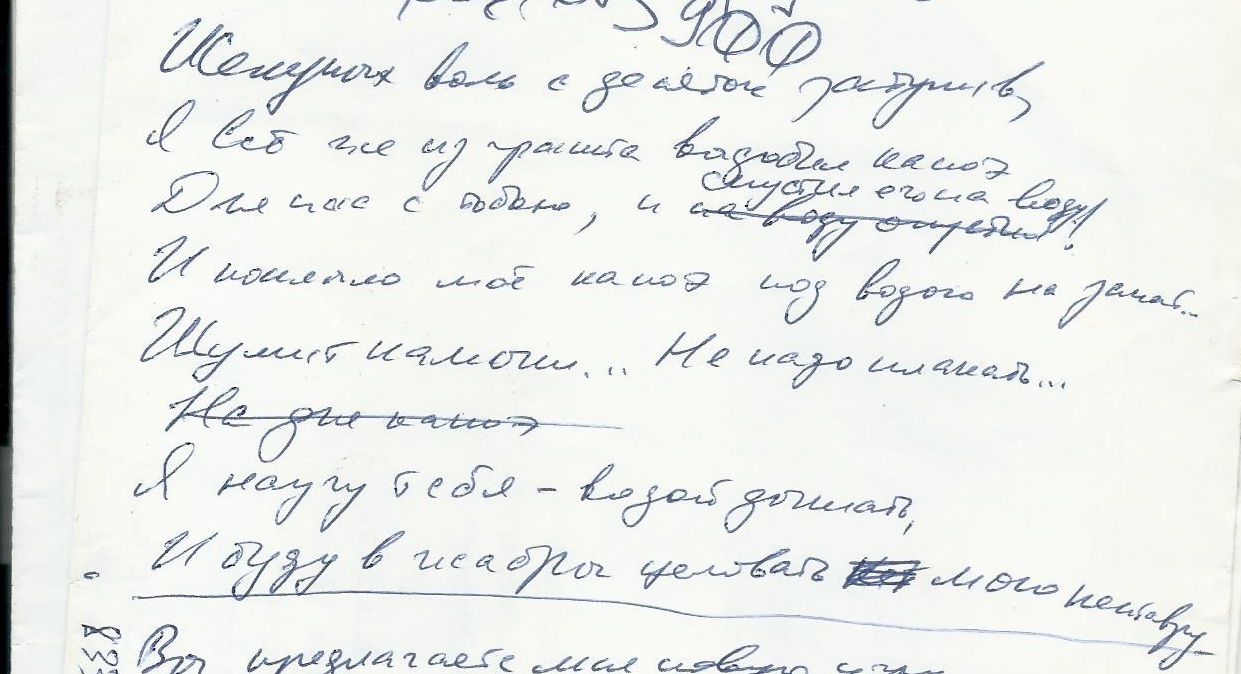 Жемчужных воль с десяток затупив,
Я всё же из гранита выдолбил каноэ
Для нас с тобою, и ~~на воду опустил~~ спустил его на воду!
И поплыло моё каноэ под водою на закат...
Шумит камыш... Не надо плакать...
~~На дне каноэ~~
Я научу тебя – водой дышать,
И буду в жабры целовать мою кентавру
Вы предлагаете мне новую